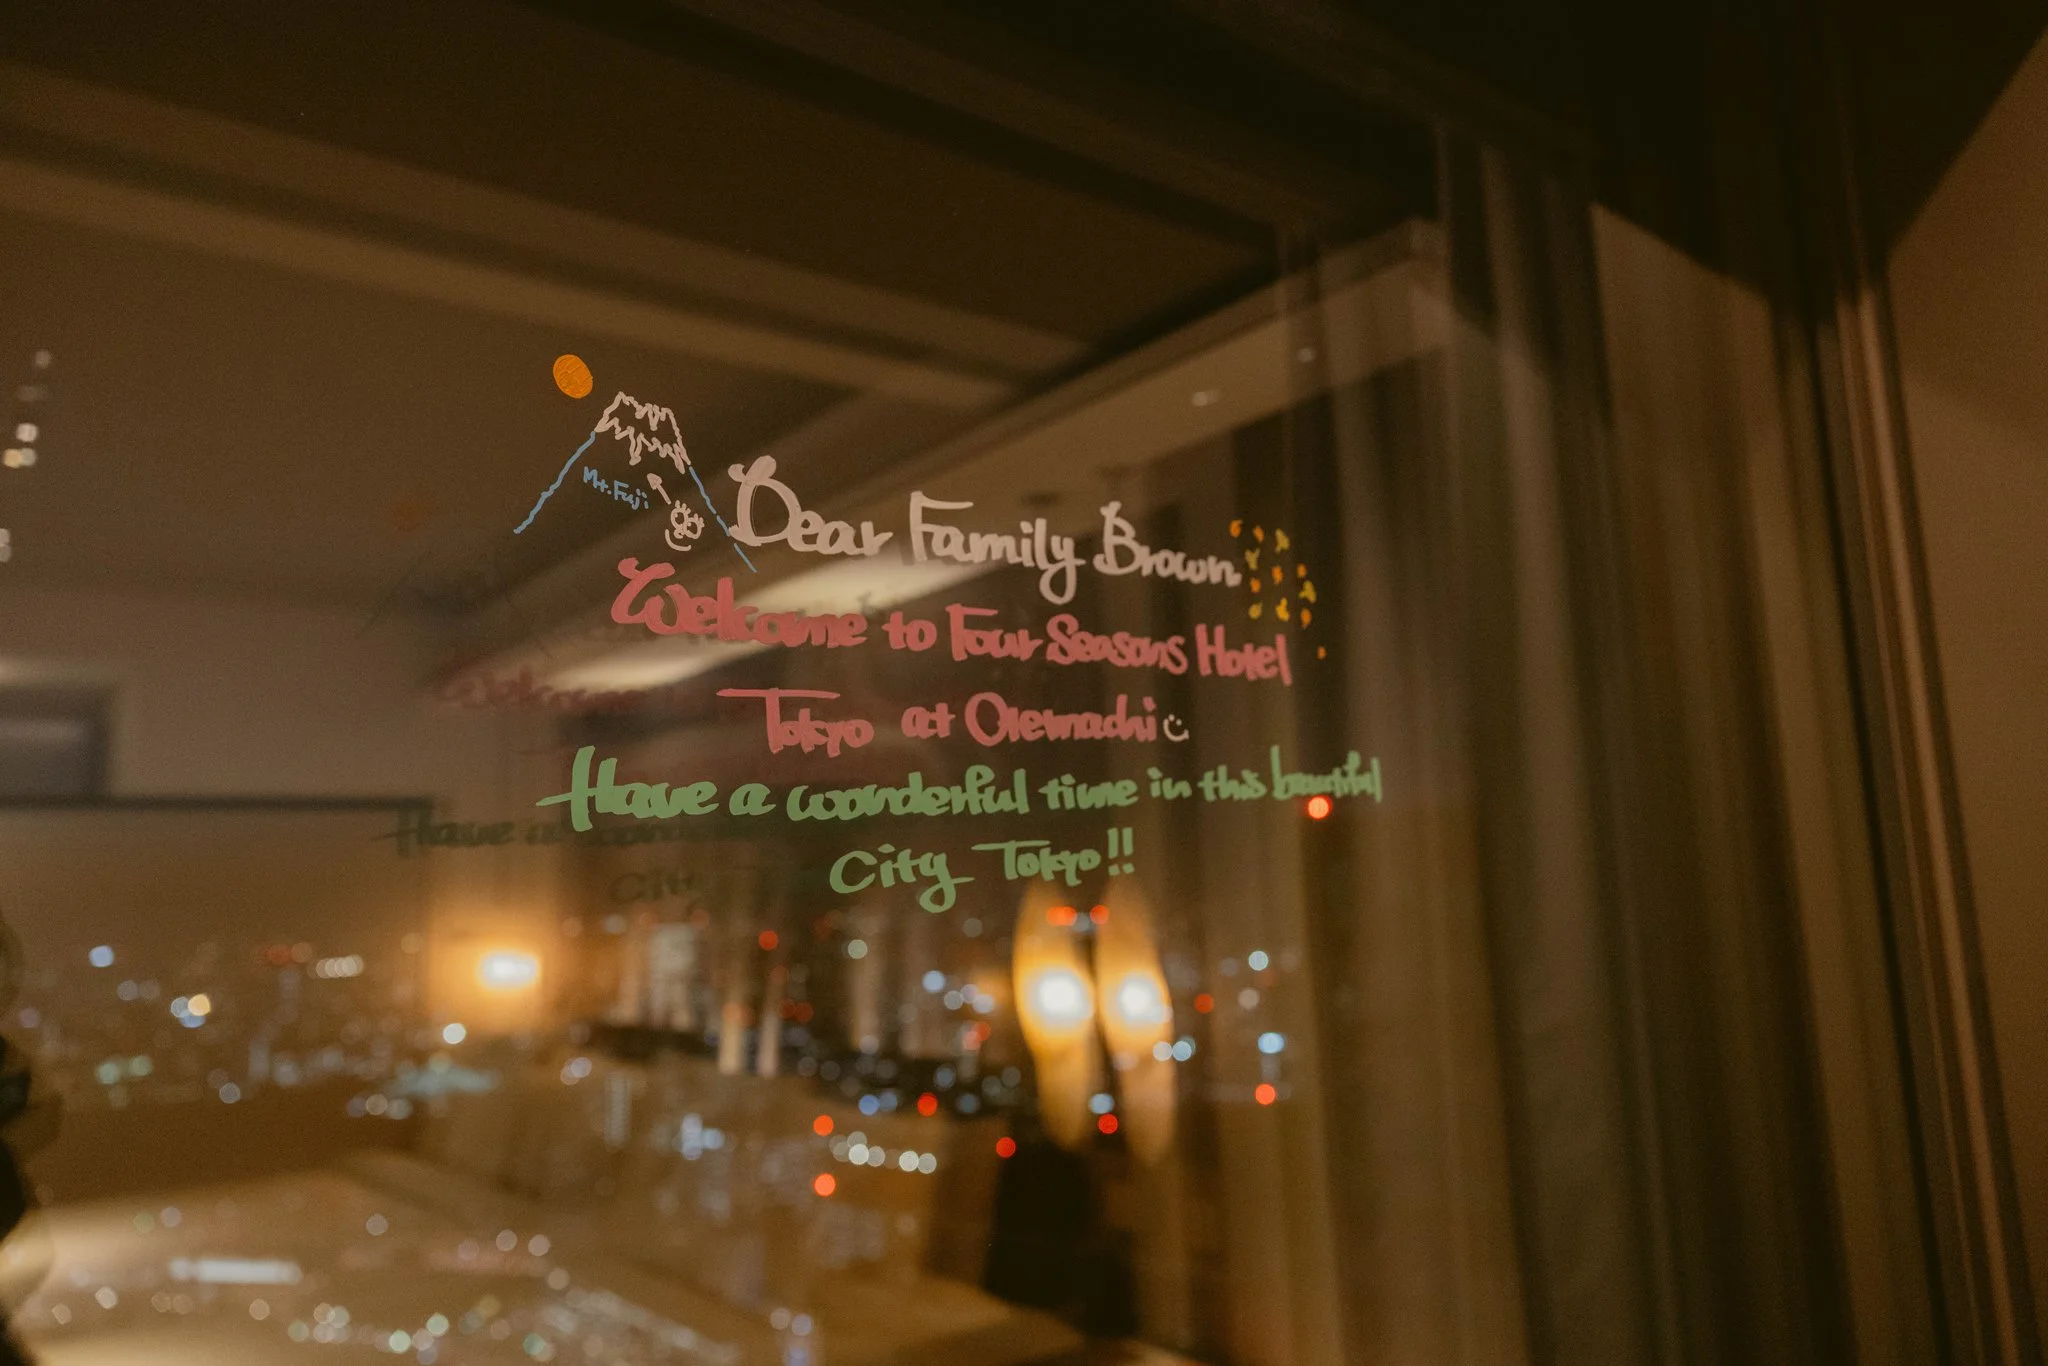 Mt. Fuji
Dear Family Brown
Welcome to Four Seasons Hotel
Tokyo at Otemachi
Have a wonderful time in this beautiful
City Tokyo!!